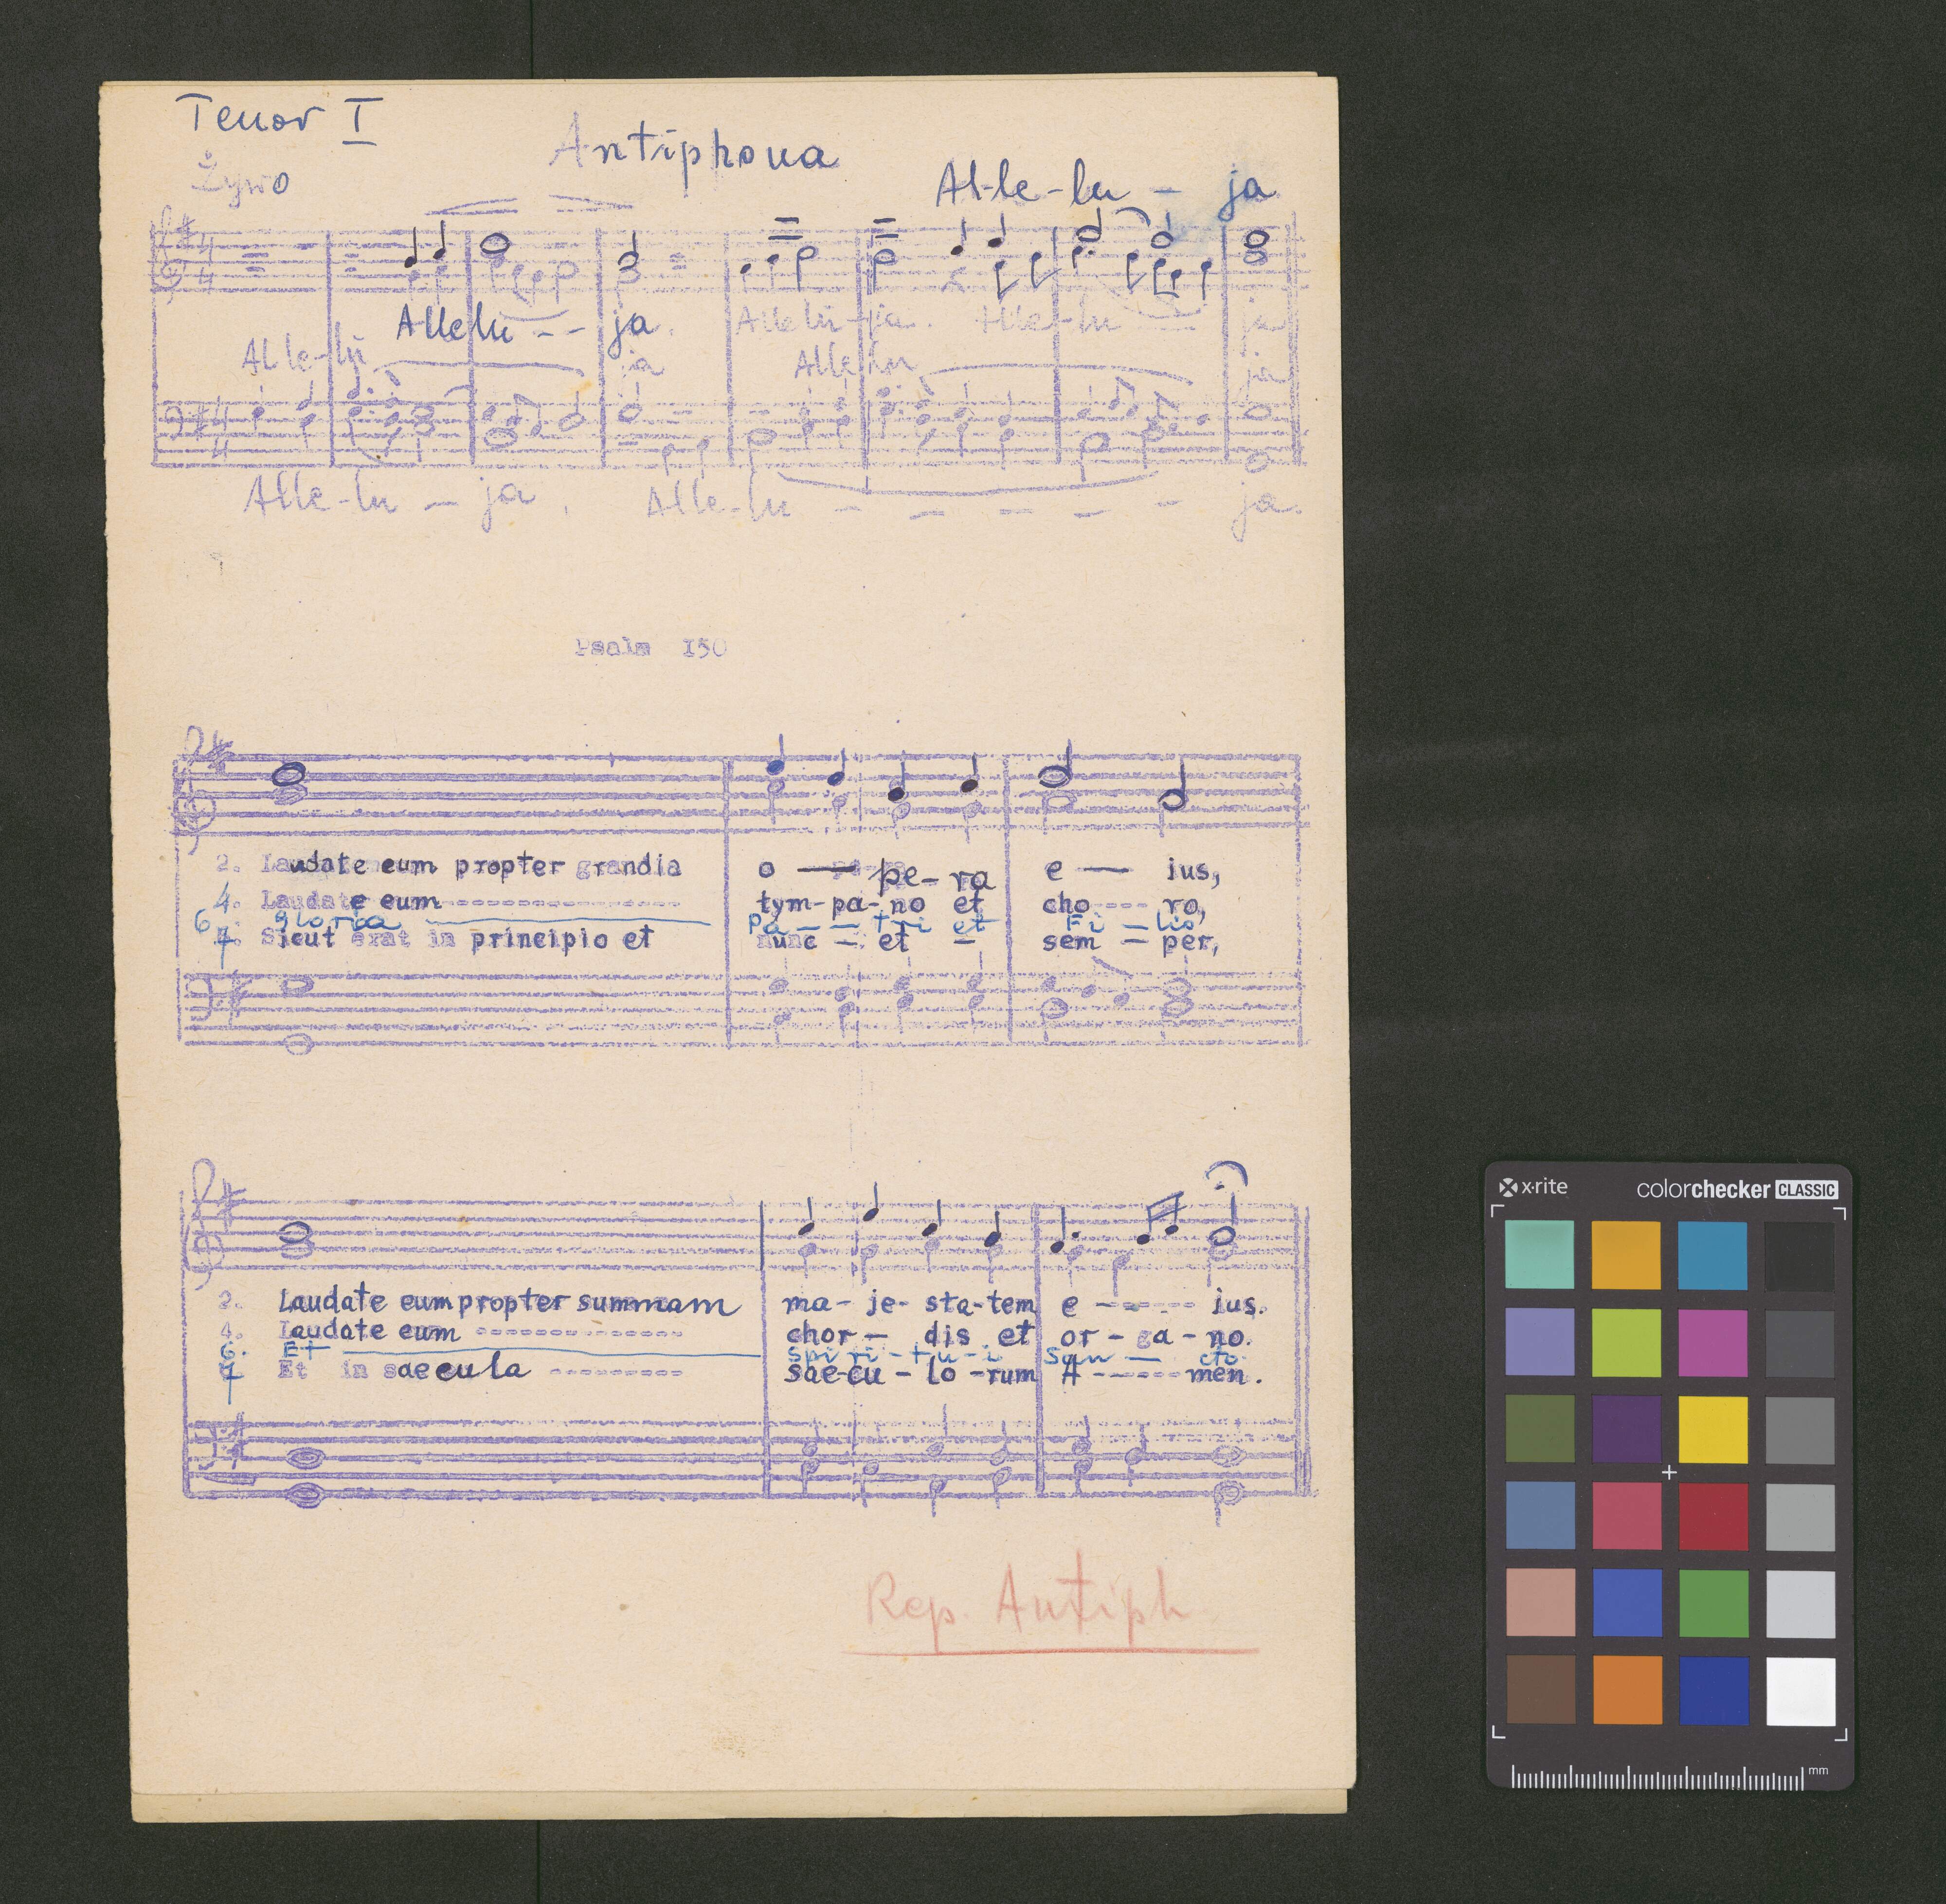 Tenor I
Antiphona
Żywo
Al-le-lu - ja
Allelu - - ja.
Allelu-ja. Alle-lu ja
Al le-lu ja Alle lu ja
Alle-lu - ja. Alle-lu - - - - - ja.
Psalm 150
2. Laudate eum propter grandia o — pe-ra e — ius,
4. Laudate eum ---------------- tym-pa-no et cho---- ro,
6 Gloria Pa - - tri et Fi - lio
7. Sicut erat in principio et nunc - et - sem - per,
2. Laudate eum propter summam ma- je- sta-tem e ------ ius.
4. Laudate eum -------------- chor- dis et or - ga - no.
6. Et Spi ri - tu - i San - cto.
7 Et in saecula --------- sae-cu - lo -rum A ------ men.
Rep. Antiph
x·rite
colorchecker CLASSIC
mm